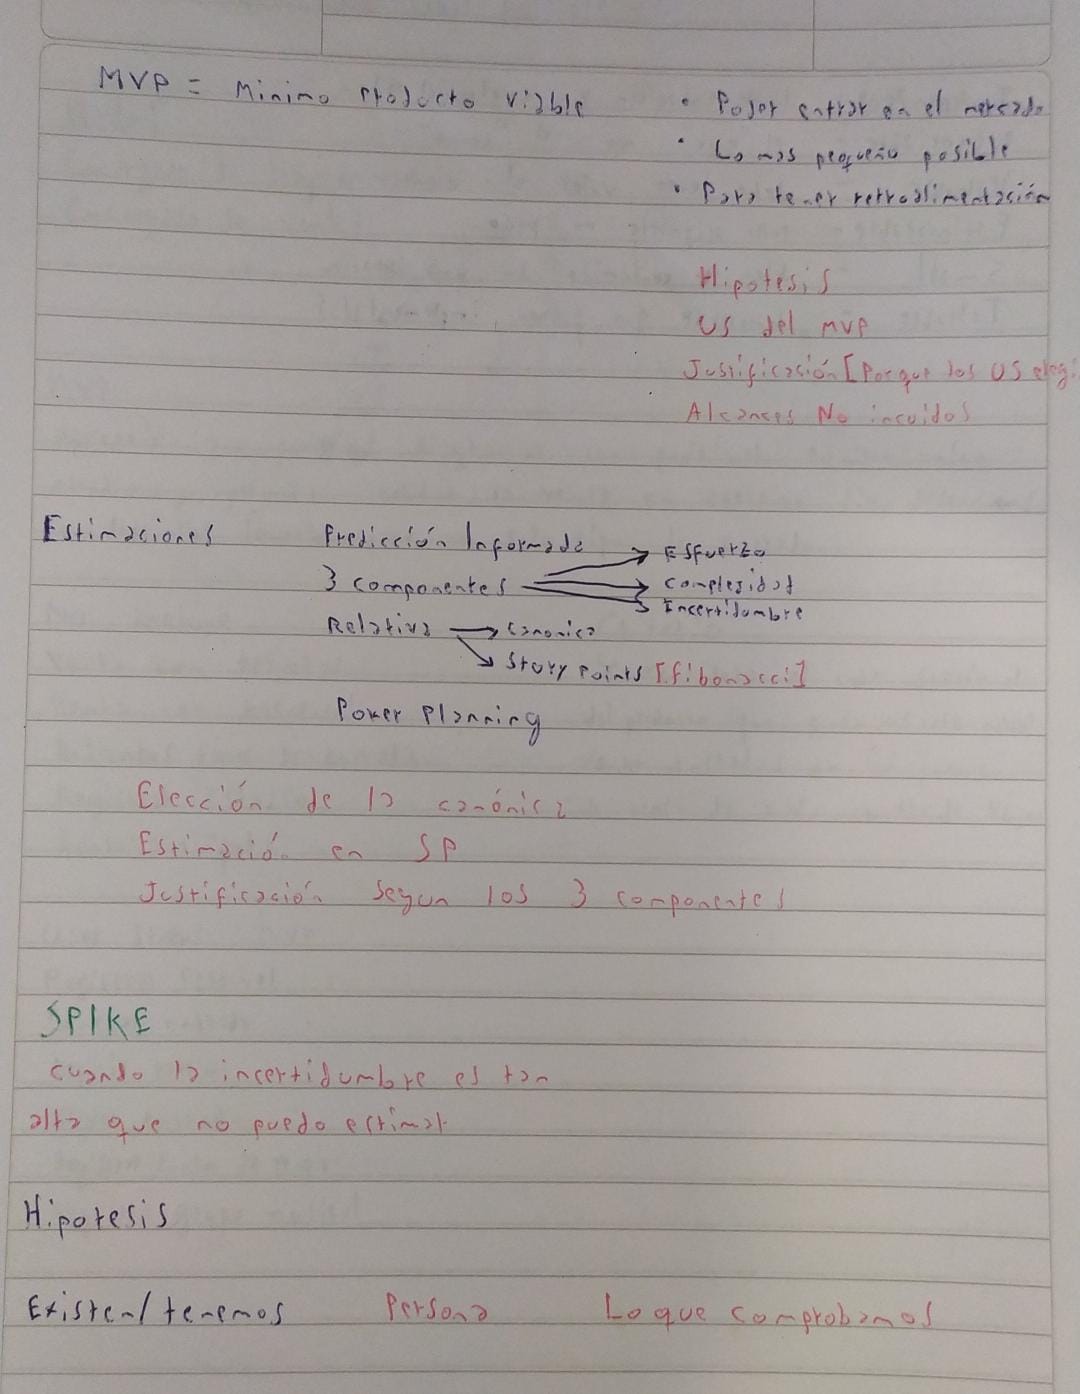 MVP = Minimo Producto Viable
• Poder entrar en el mercado
• Lo mas pequeño posible
• Para tener retroalimentación
Hipotesis
US del MVP
Justificación [Porque los US elegi
Alcances No incuidos
Estimaciones
Predicción Informada
3 componentes → Esfuerzo
→ Complejidad
→ Incertidumbre
Relativa → Canonica
→ Story Points [fibonacci]
Poker Planning
Elección de la canónica
Estimación en SP
Justificación Segun los 3 componentes
SPIKE
cuando la incertidumbre es tan
alta que no puedo estimar
Hipotesis
Existen/tenemos Persona Lo que comprobamos